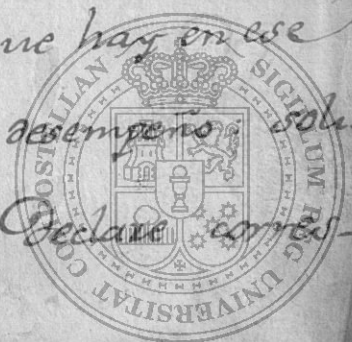 ue hay en ese
desempeño. solu
Declare corres-
SIGILLUM REG UNIVERSITAT COMPOSTELLAN